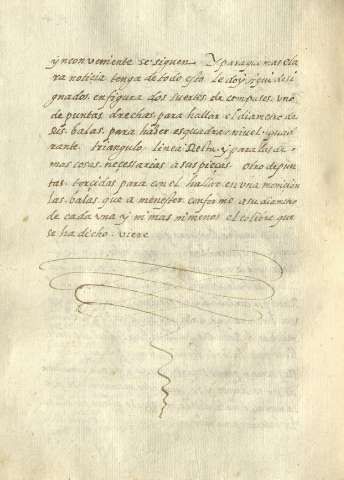 ynconveniente se siguen. Y para que mas cla
ra noticia tenga de todo esto le doy aqui desi
gnados, en figura dos suertes de compases, vno
de puntas drechas, para hallar el diametro de
sus balas, para hazer esquadra, nivel, quad
rante, triangulo, linea recta, y para las de
mas cosas neçessarias a sus pieças. otro de pun
tas torcidas para con el hallar en vna monicion
las balas que a menester conforme a su diametro
de cada vna y ni mas ni menos el colibre que
se ha dicho viere